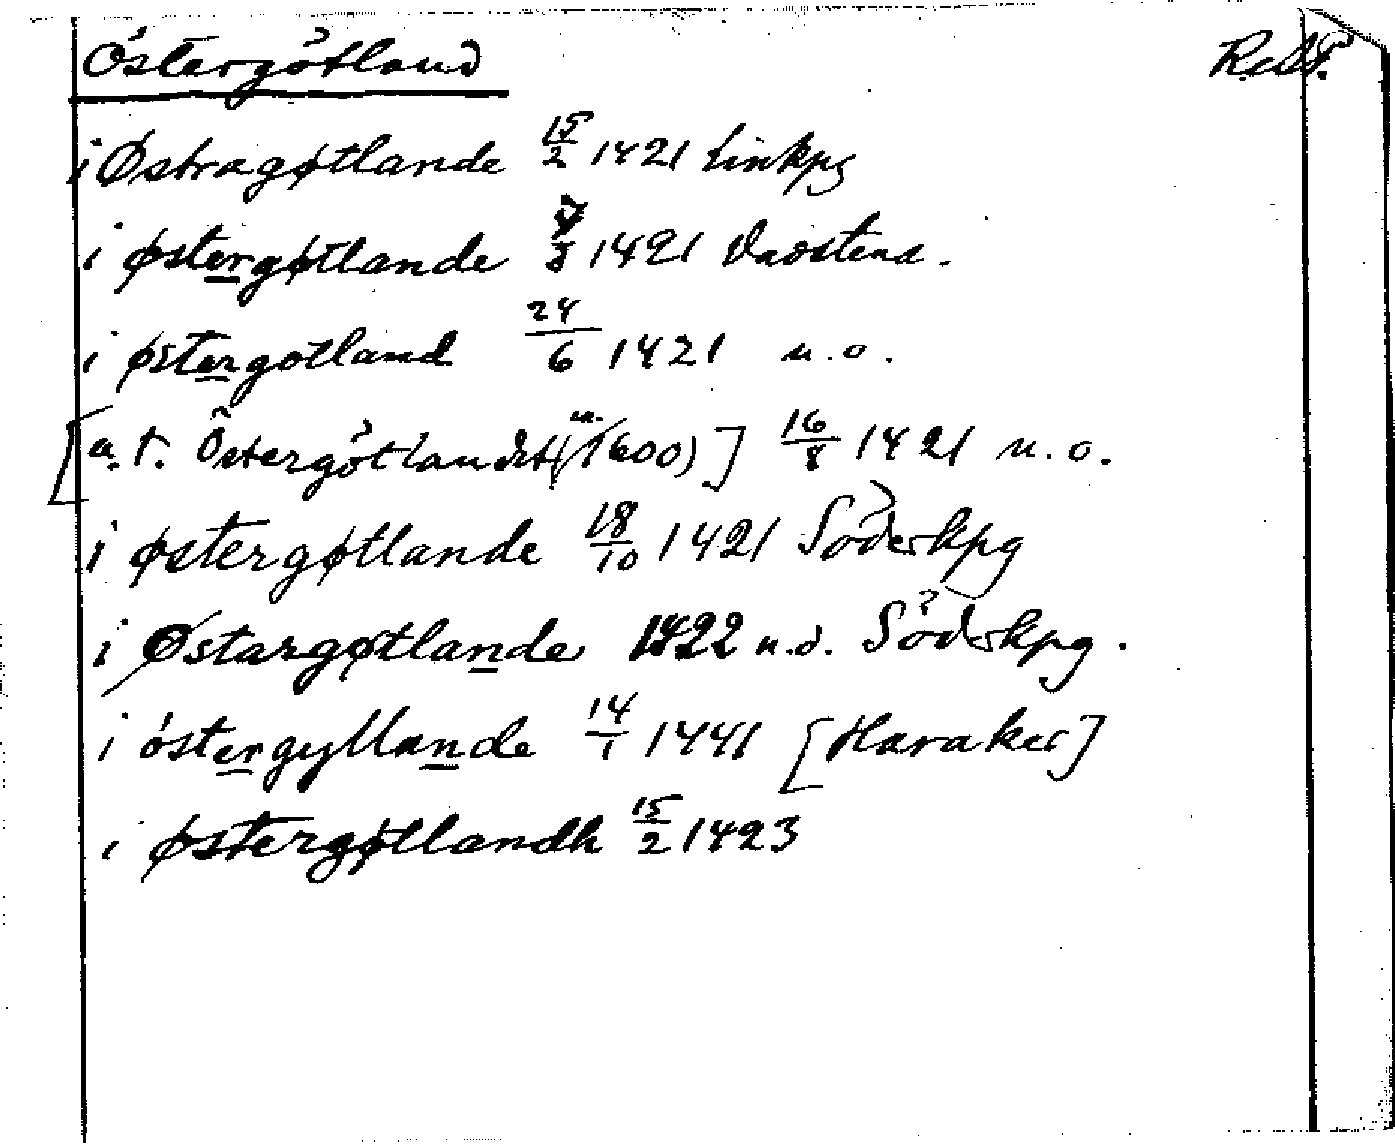 Östergötland
i Østragøtlande 15/2 1421 Linkpg
i østergøtlande 1421 Vadstena.
i østergotland 24/6 1421 u.o.
[a.t. Östergötlandet (1600)] 16/8 1421 u.o.
i østergøtlande 18/10 1421 Söderkpg
i Østargøtlande 1422 u.d. Söderkpg.
i östergyllande 14/1 1441 [Haraker]
i østergøtlandh 15/2 1423